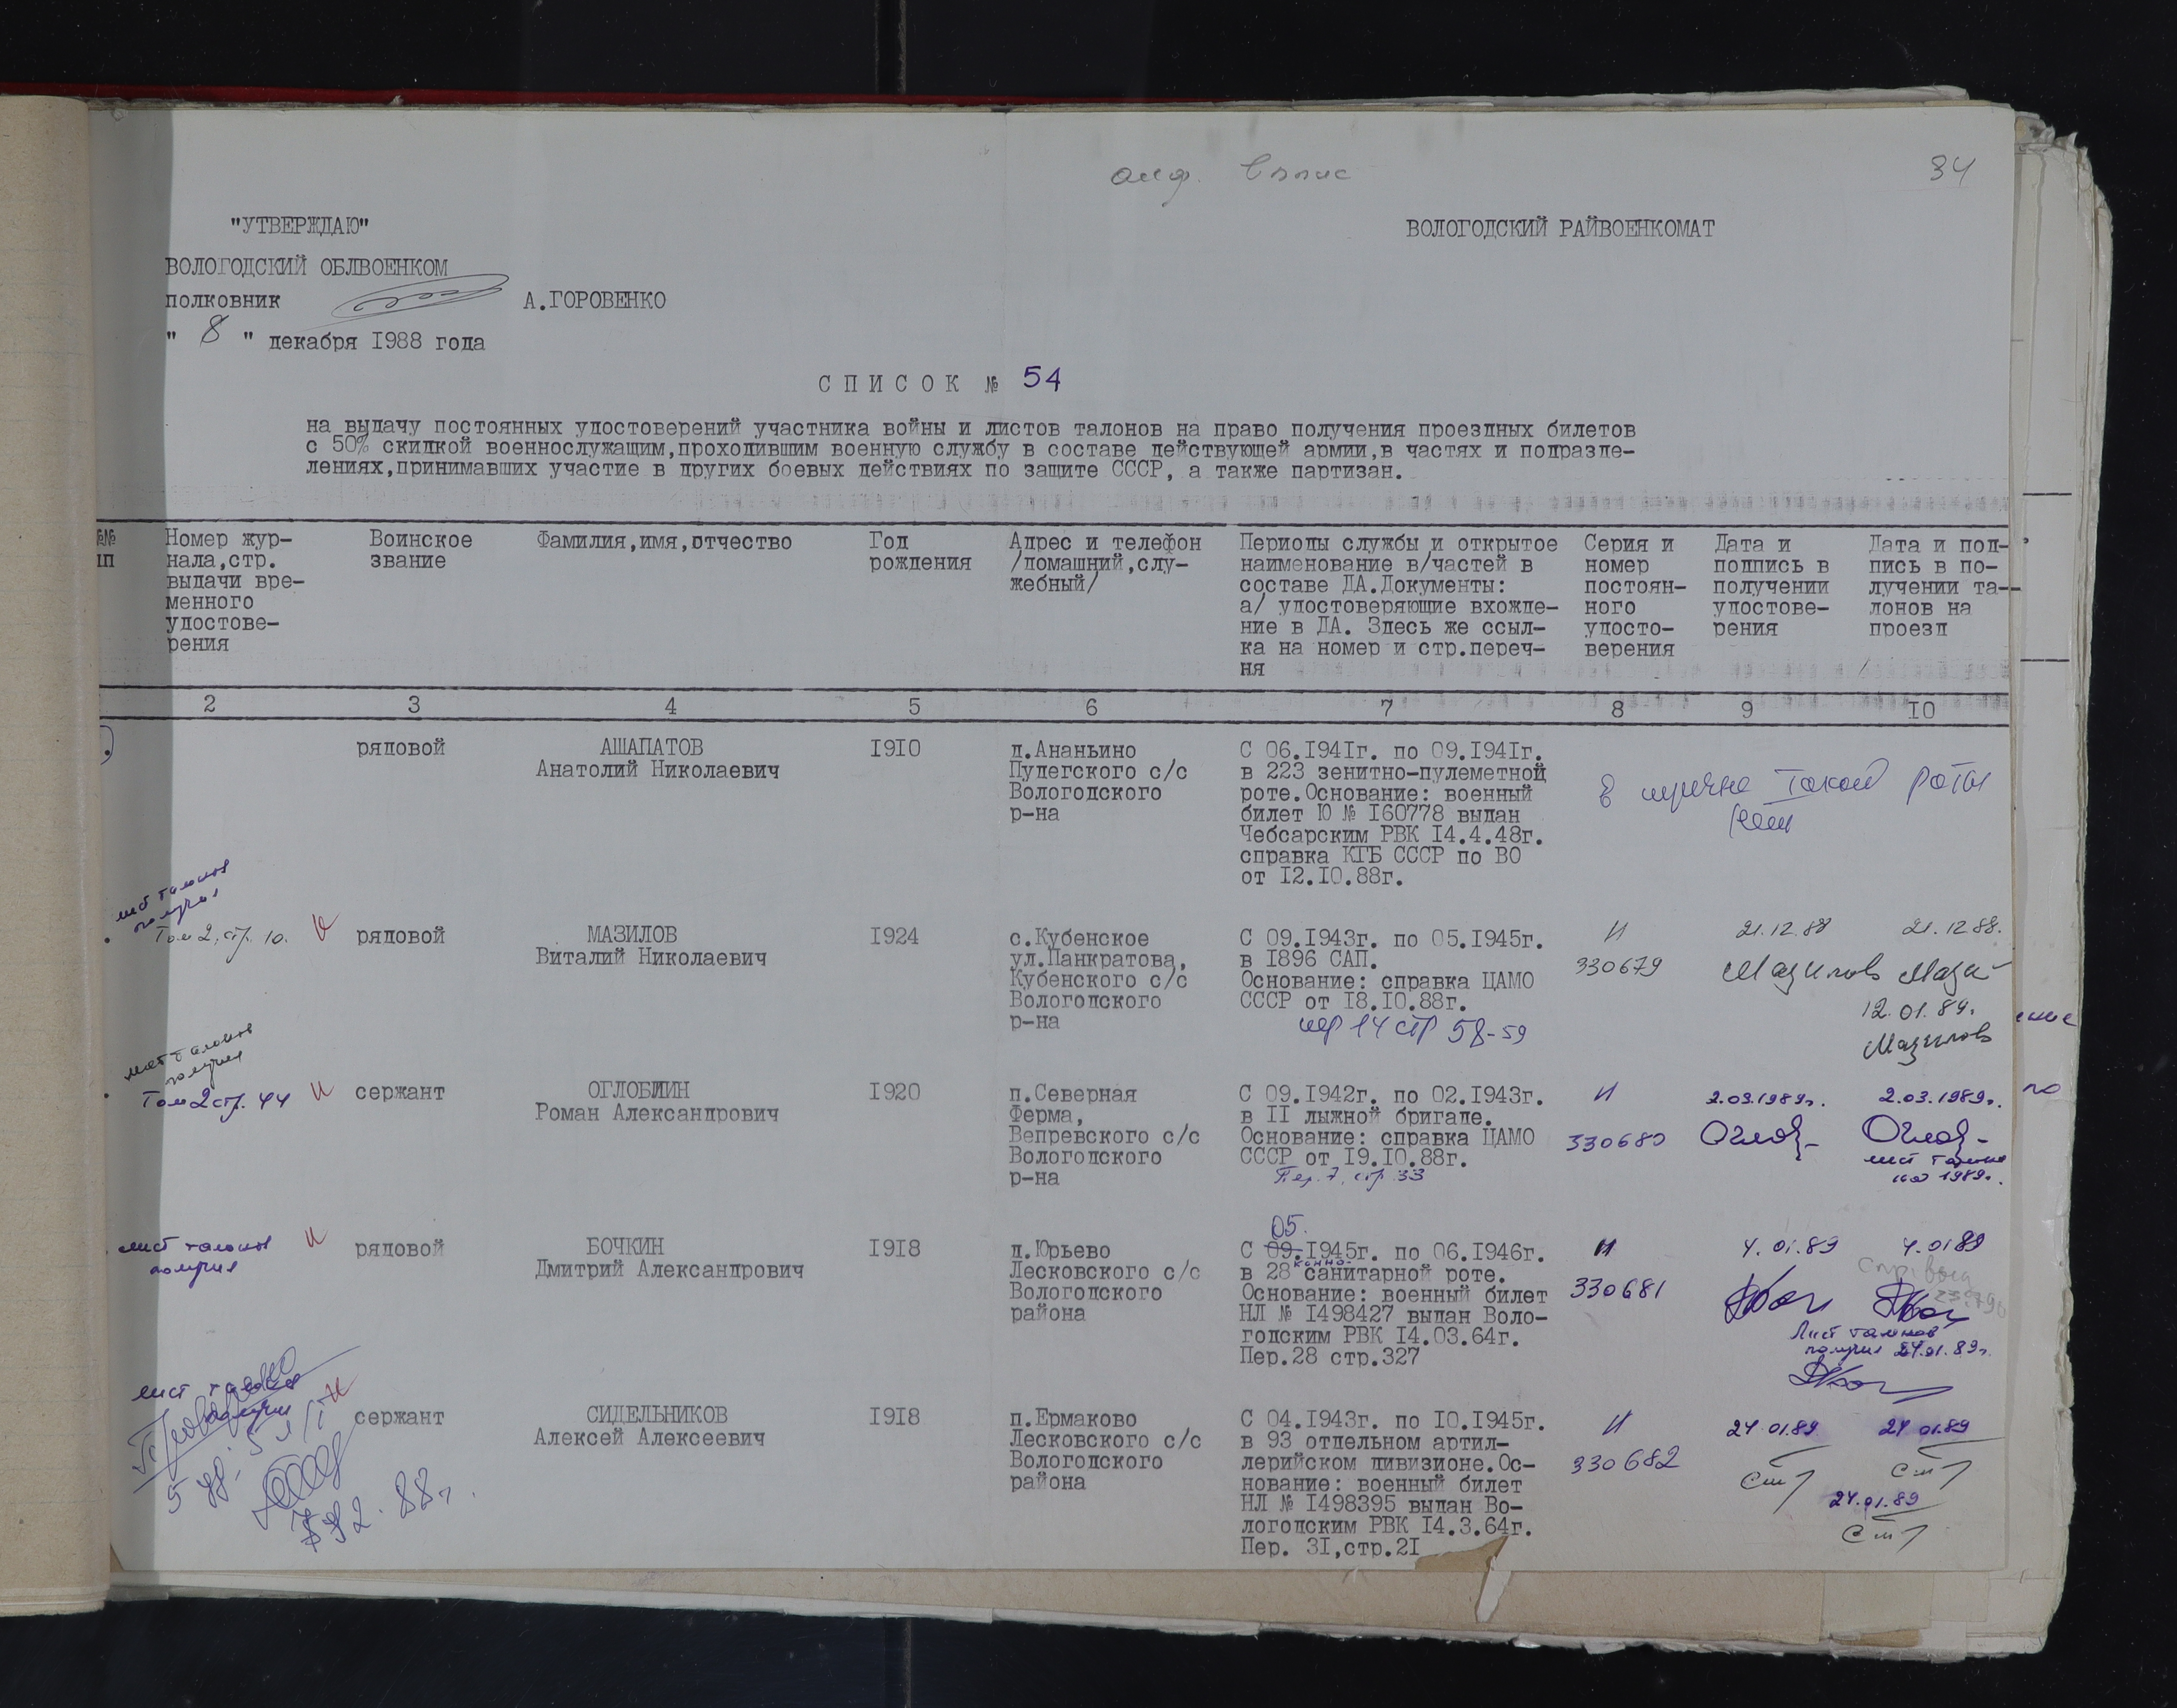 34
"УТВЕРЖДАЮ"
ВОЛОГОДСКИЙ РАЙВОЕНКОМАТ
ВОЛОГОДСКИЙ ОБЛВОЕНКОМ
полковник А.ГОРОВЕНКО
" 8 " декабря I988 года
С П И С О К № 54
на выдачу постоянных удостоверений участника войны и листов талонов на право получения проездных билетов
с 50% скидкой военнослужащим,проходившим военную службу в составе действующей армии,в частях и подразде-
лениях,принимавших участие в других боевых действиях по защите СССР, а также партизан.
№№
пп
Номер жур-
нала,стр.
выдачи вре-
менного
удостове-
рения
Воинское
звание
Фамилия,имя,отчество
Год
рождения
Адрес и телефон
/домашний,слу-
жебный/
Периоды службы и открытое
наименование в/частей в
составе ДА.Документы:
а/ удостоверяющие вхожде-
ние в ДА. Здесь же ссыл-
ка на номер и стр.переч-
ня
Серия и
номер
постоян-
ного
удосто-
верения
Дата и
подпись в
получении
удостове-
рения
Дата и под-
пись в по-
лучении та-
лонов на
проезд
2 3 4 5 6 7 8 9 I0
рядовой
АШАПАТОВ
Анатолий Николаевич
I9I0
д.Ананьино
Пудегского с/с
Вологодского
р-на
С 06.I94Iг. по 09.I94Iг.
в 223 зенитно-пулеметной
роте.Основание: военный
билет Ю № I60778 выдан
Чебсарским РВК I4.4.48г.
справка КГБ СССР по ВО
от I2.I0.88г.
такой роты
нет
лист талонов
получил
Том 2, стр. 10.
рядовой
МАЗИЛОВ
Виталий Николаевич
I924
с.Кубенское
ул.Панкратова,
Кубенского с/с
Вологодского
р-на
С 09.I943г. по 05.I945г.
в I896 САП.
Основание: справка ЦАМО
СССР от I8.I0.88г.
пер 14 стр 58-59
И
330679
21.12.88
Мазилов
21.12.88.
Мази
12.01.89.
Мазилов
лист талонов
получил
Том 2 стр. 44
и
сержант
ОГЛОБЛИН
Роман Александрович
I920
п.Северная
Ферма,
Вепревского с/с
Вологодского
р-на
С 09.I942г. по 02.I943г.
в II лыжной бригаде.
Основание: справка ЦАМО
СССР от I9.I0.88г.
Пер. 7, стр 33
И
330680
2.03.1989г.
Оглоб
2.03.1989г.
Оглоб
лист талонов
на 1989г.
лист талонов
получил
и
рядовой
БОЧКИН
Дмитрий Александрович
I9I8
д.Юрьево
Лесковского с/с
Вологодского
района
05.
С 09.I945г. по 06.I946г.
конно-
в 28 санитарной роте.
Основание: военный билет
НЛ № I498427 выдан Воло-
годским РВК I4.03.64г.
Пер.28 стр.327
И
330681
4.01.89
4.01.89
Лист талонов
получил 24.01.89г.
лист талонов
получил
и
сержант
СИДЕЛЬНИКОВ
Алексей Алексеевич
I9I8
п.Ермаково
Лесковского с/с
Вологодского
района
С 04.I943г. по I0.I945г.
в 93 отдельном артил-
лерийском дивизионе.Ос-
нование: военный билет
НЛ № I498395 выдан Во-
логодским РВК I4.3.64г.
Пер. 3I,стр.2I
И
330682
24.01.89
24.01.89
24.01.89